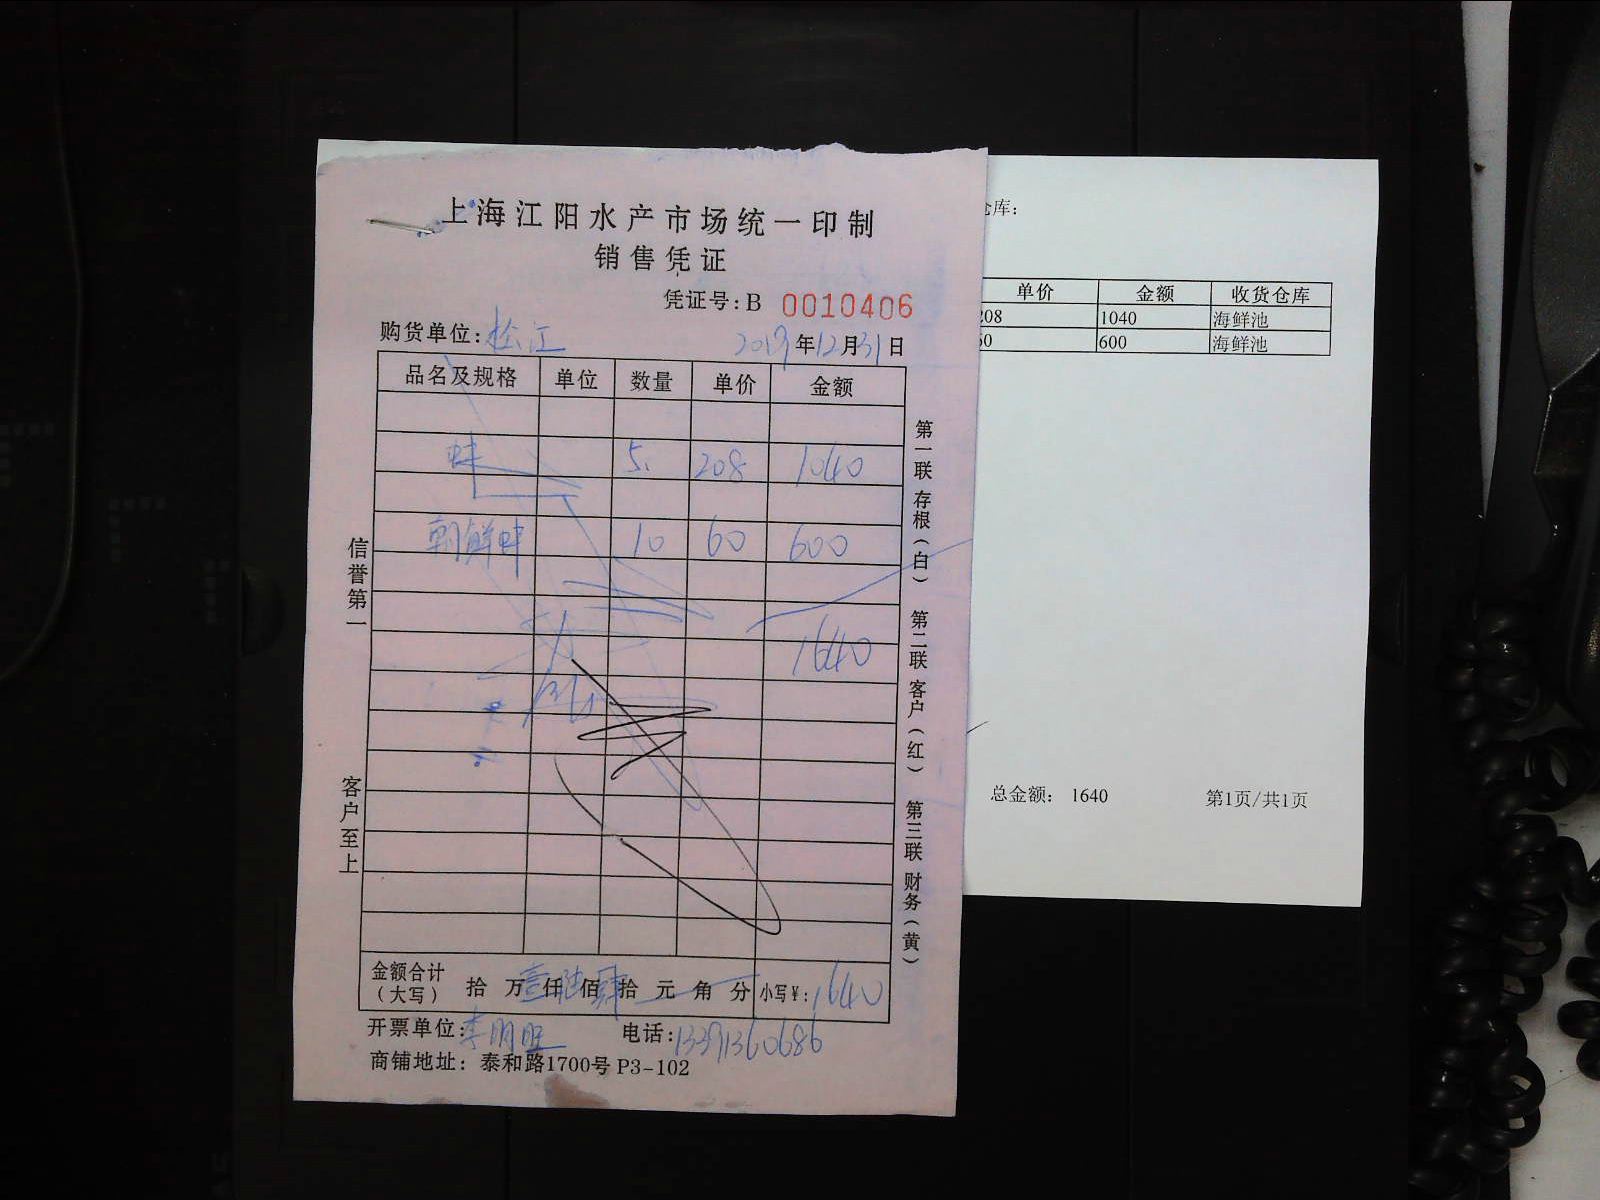 上海江阳水产市场统一印制
销售凭证
凭证号：B 0010406
购货单位：松江 2019年12月31日
品名及规格 单位 数量 单价 金额
蚌 5 208 1040
朝鲜蚌 10 60 600
1640
金额合计（大写） 拾 万 壹仟 陆佰 肆拾 元 角 分 小写¥：1640
开票单位：李明旺 电话：13391360686
商铺地址：泰和路1700号 P3-102
信誉第一
客户至上
第一联 存根（白） 第二联 客户（红） 第三联 财务（黄）
库：
单价 金额 收货仓库
08 1040 海鲜池
0 600 海鲜池
总金额： 1640 第1页/共1页